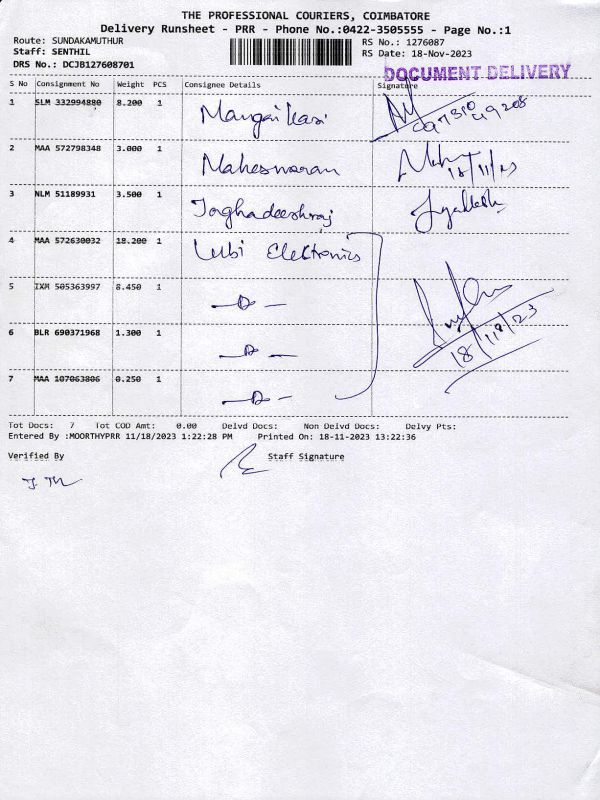 THE PROFESSIONAL COURIERS, COIMBATORE
Delivery Runsheet - PRR - Phone No.:0422-3505555 - Page No.:1
Route: SUNDAKAMUTHUR RS No.: 1276087
Staff: SENTHIL RS Date: 18-Nov-2023
DRS No.: DCJB127608701 DOCUMENT DELIVERY
S No Consignment No Weight PCS Consignee Details Signature
1 SLM 332994880 8.200 1 Mangaikasi
2 MAA 572798348 3.000 1 Maheswaran 18/11/23
3 NLM 51189931 3.500 1
4 MAA 572630032 18.200 1 Lubi Elektronics
5 IXM 505363997 8.450 1 —D—
6 BLR 690371968 1.300 1 —D— 18/11/23
7 MAA 107063806 0.250 1 —D—
Tot Docs: 7 Tot COD Amt: 0.00 Delvd Docs: Non Delvd Docs: Delvy Pts:
Entered By :MOORTHYPRR 11/18/2023 1:22:28 PM Printed On: 18-11-2023 13:22:36
Verified By Staff Signature